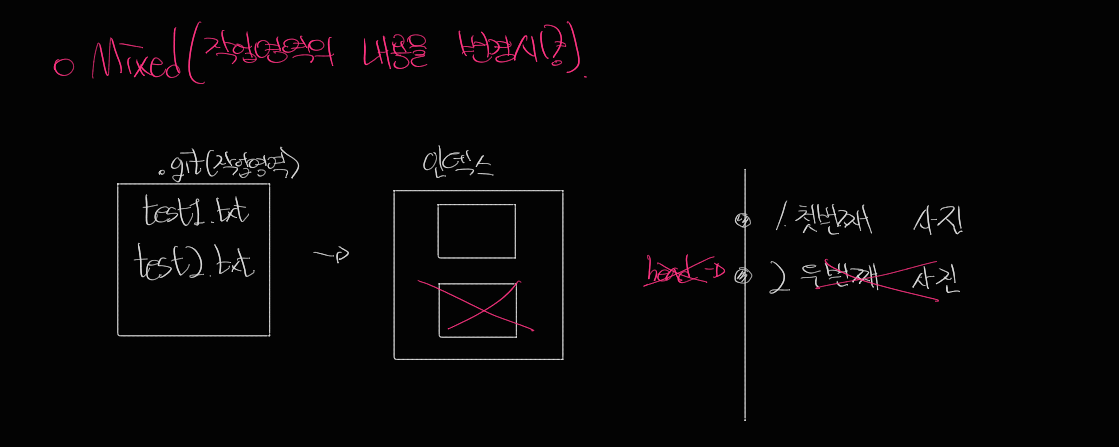 o Mixed(작업영역의 내용을 변경시킴).
.git(작업영역)
test1.txt
test2.txt
인덱스
1. 첫번째 사진
head
2 두번째 사진